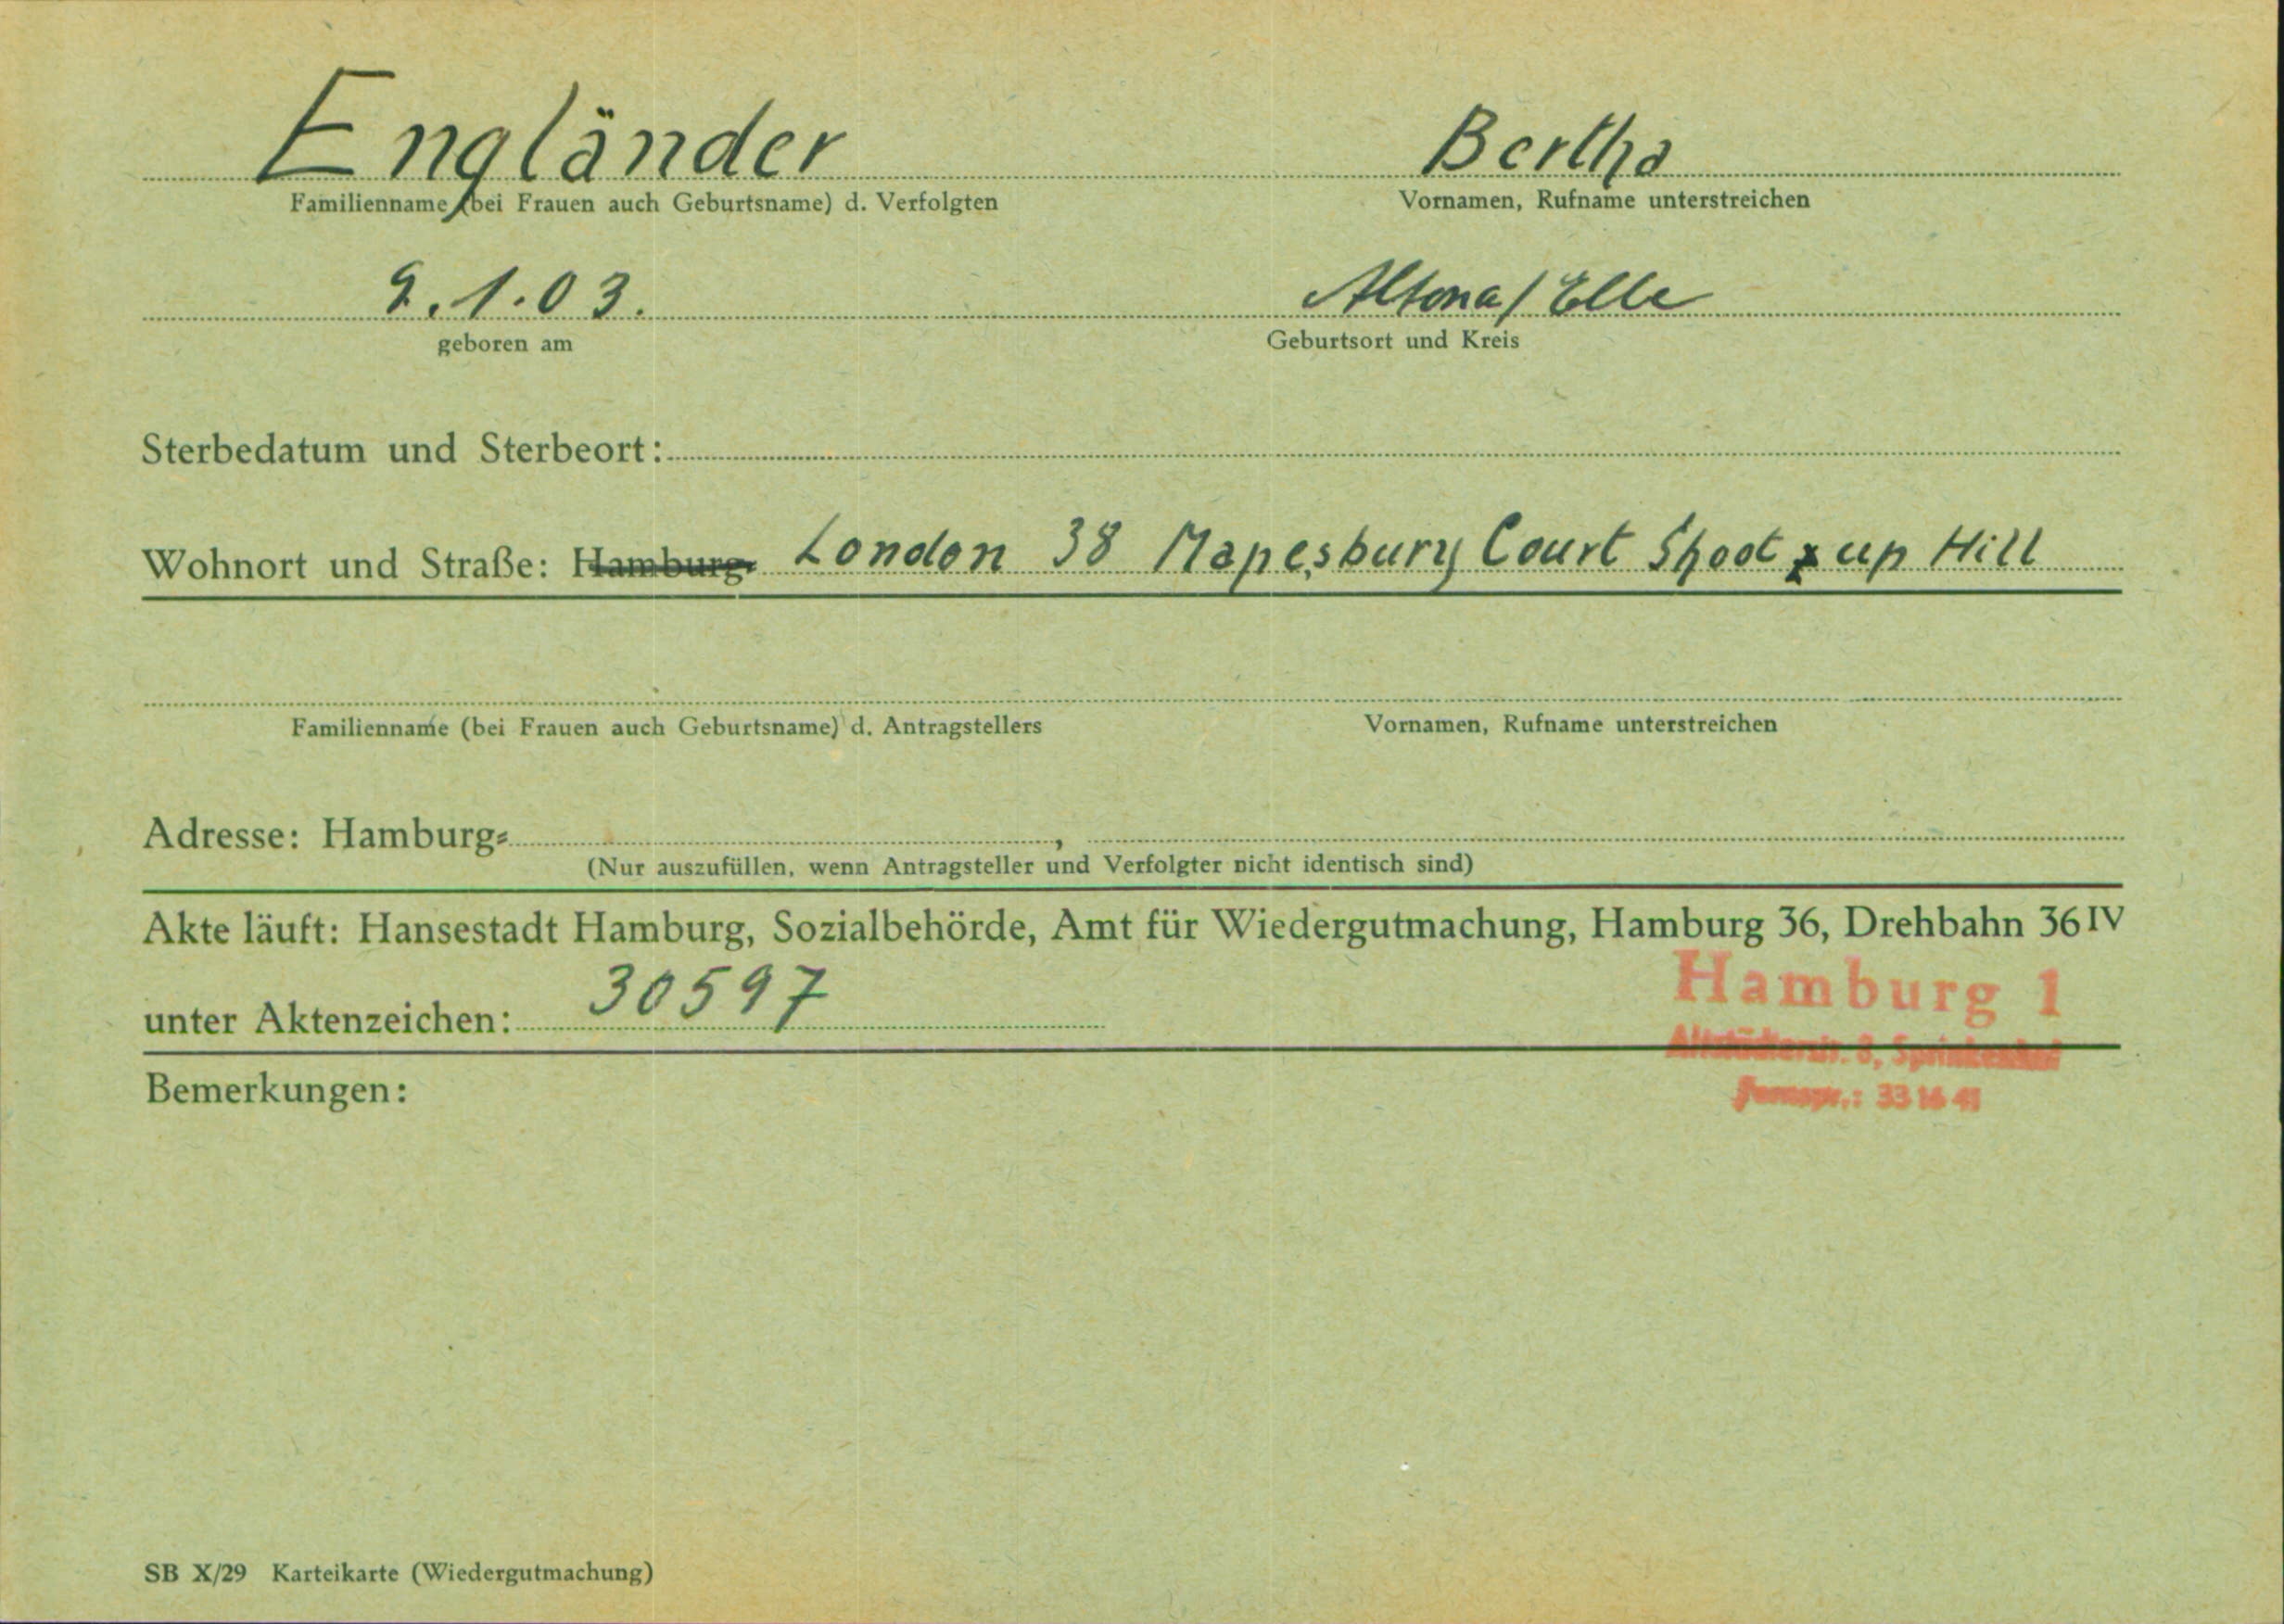 Engländer Bertha
Familienname (bei Frauen auch Geburtsname) d. Verfolgten Vornamen, Rufname unterstreichen
9.1.03. Altona/Elbe
geboren am Geburtsort und Kreis
Sterbedatum und Sterbeort:
Wohnort und Straße: Hamburg- London 38 Mapesbury Court Shoot x up Hill
Familienname (bei Frauen auch Geburtsname) d. Antragstellers Vornamen, Rufname unterstreichen
Adresse: Hamburg- ,
(Nur auszufüllen, wenn Antragsteller und Verfolgter nicht identisch sind)
Akte läuft: Hansestadt Hamburg, Sozialbehörde, Amt für Wiedergutmachung, Hamburg 36, Drehbahn 36 IV
Hamburg 1
unter Aktenzeichen: 30597
Altstädterstr. 8, Sprinkenhof
Fernspr.: 33 16 41
Bemerkungen:
SB X/29 Karteikarte (Wiedergutmachung)